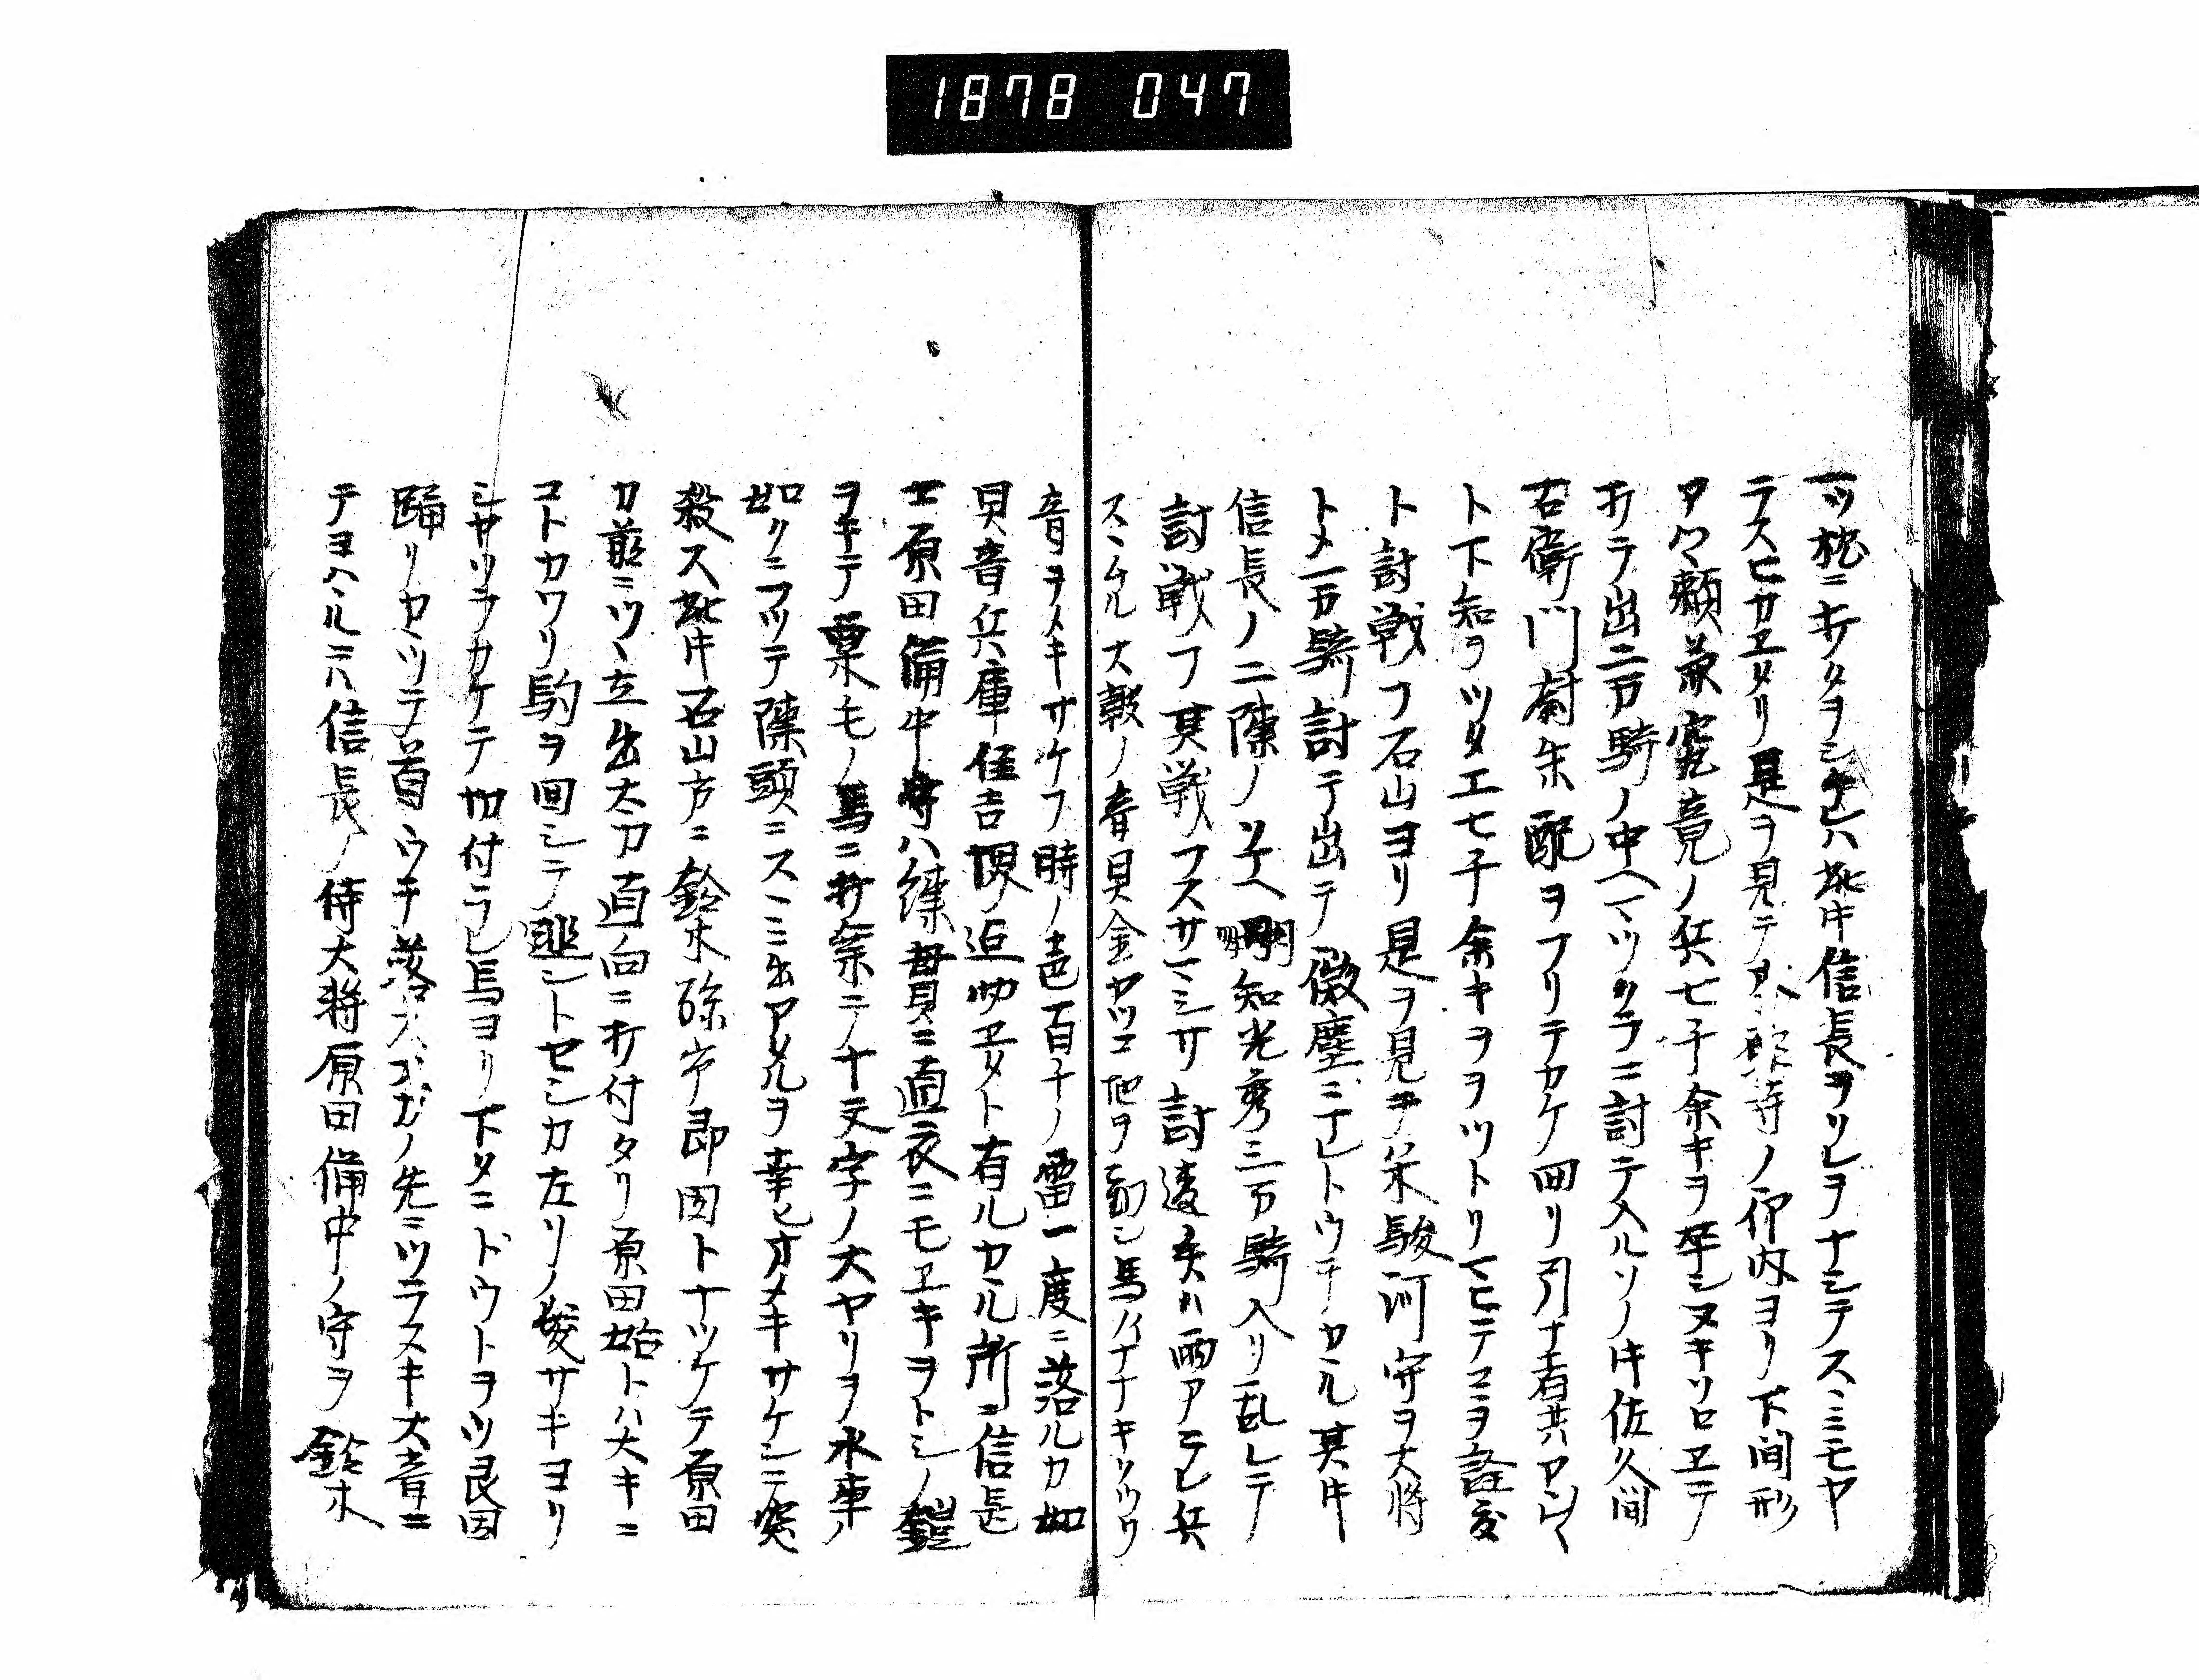 1878 047
一ツ松ニオクヲシテレハ此中信長ヲソレヲナシテスミミモヤ
テスヒカヱタリ是ヲ見テ 寺ノ仰内ヨリ下間形
アク頼兼究竟ノ兵七千余キヲ卒シヌキソロヱテ
折テ出二万騎ノ中ヘマツクラニ討テ入ルソノキ佐久間
右衛門尉朱配ヲフリテカケ回リ引ナ者共アレ
ト下知ヲツタエ七千余キヲヲツトリマヒテコヲ詮度
ト討戦フ石山ヨリ是ヲ見テ栄駿河守ヲ大将
トメ一万騎討テ出テ微塵ニナレトウチカル其キ
信長ノ二陳ノソナヘ明知光秀三万騎入リ乱レテ
討戦フ其戦フスサマシサ討違矢ハ雨アラレ兵
スヽムル大皷ノ音貝金ヤツコ地ヲ動シ馬ノイナナキソツワ
音ヲメキサケフ時ノ声百千ノ雷一度ニ落ルカ如
貝音兵庫住吉堺ノ辺也ヱタト有ルカル所ニ信長
士原田備中守ハ練毎貝ニ直衣ニモヱキヲトシノ鎧
ヲキテ栗毛ノ馬ニ打乗テ十文字ノ大ヤリヲ水車ノ
如クニフツテ陳頭ニスヽミ出アタルヲ幸ヒオメキサケンニ突
殺ス此キ石山方ニ鈴木孫市郎因トナツケテ原田
カ前ニツヽ立出太刀直向ニ打付タリ原田始トハ大キニ
コトカワリ駒ヲ回シテ逃ントセシカ左リノ後サキヨリ
シサソラカケテ切付ラレ馬ヨリ下タニドウトヲツ良因
踊リカヽツテ首ウチ落スホガノ先ニツラスキ大音ニ
テヨハルニハ信長ノ侍大将原田備中ノ守ヲ鈴木